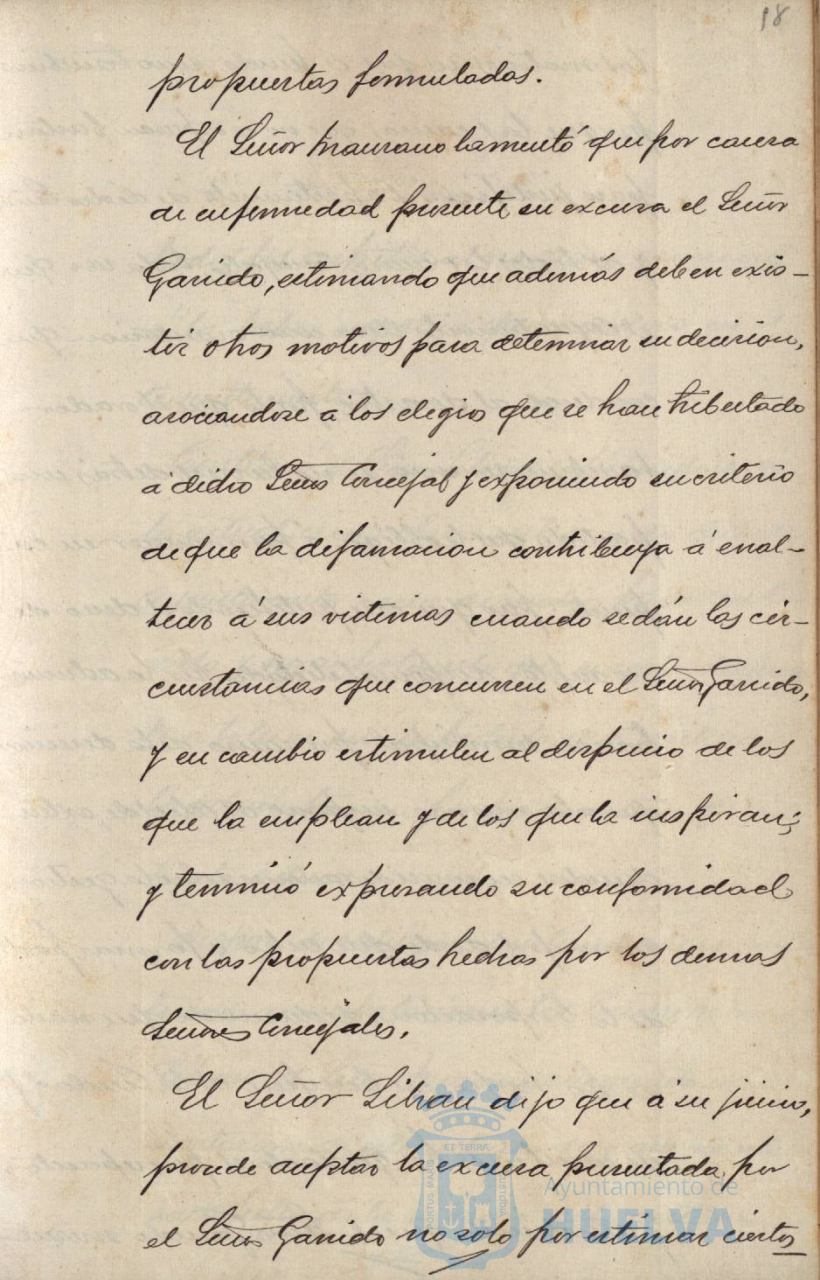 18
propuestas formuladas.
El Señor Maurano lamentó que por causa
de enfermedad presente su excusa el Señor
Garrido, estimando que además deben exis-
tir otros motivos para determinar su decision,
asociandose á los elogios que se han tributado
á dicho Señor Concejal y exponiendo su criterio
de que la difamacion contribuya á enal-
tecer á sus victimas cuando se dán las cir-
cunstancias que concurren en el Señor Garrido,
y en cambio estimulen al desprecio de los
que la emplean y de los que la inspiran;
y terminó expresando su conformidad
con las propuestas hechas por los demas
Señores Concejales.
El Señor dijo que á su juicio,
procede aceptar la excusa presentada por
el Señor Garrido no solo por estimar ciertos
Ayuntamiento de
HUELVA